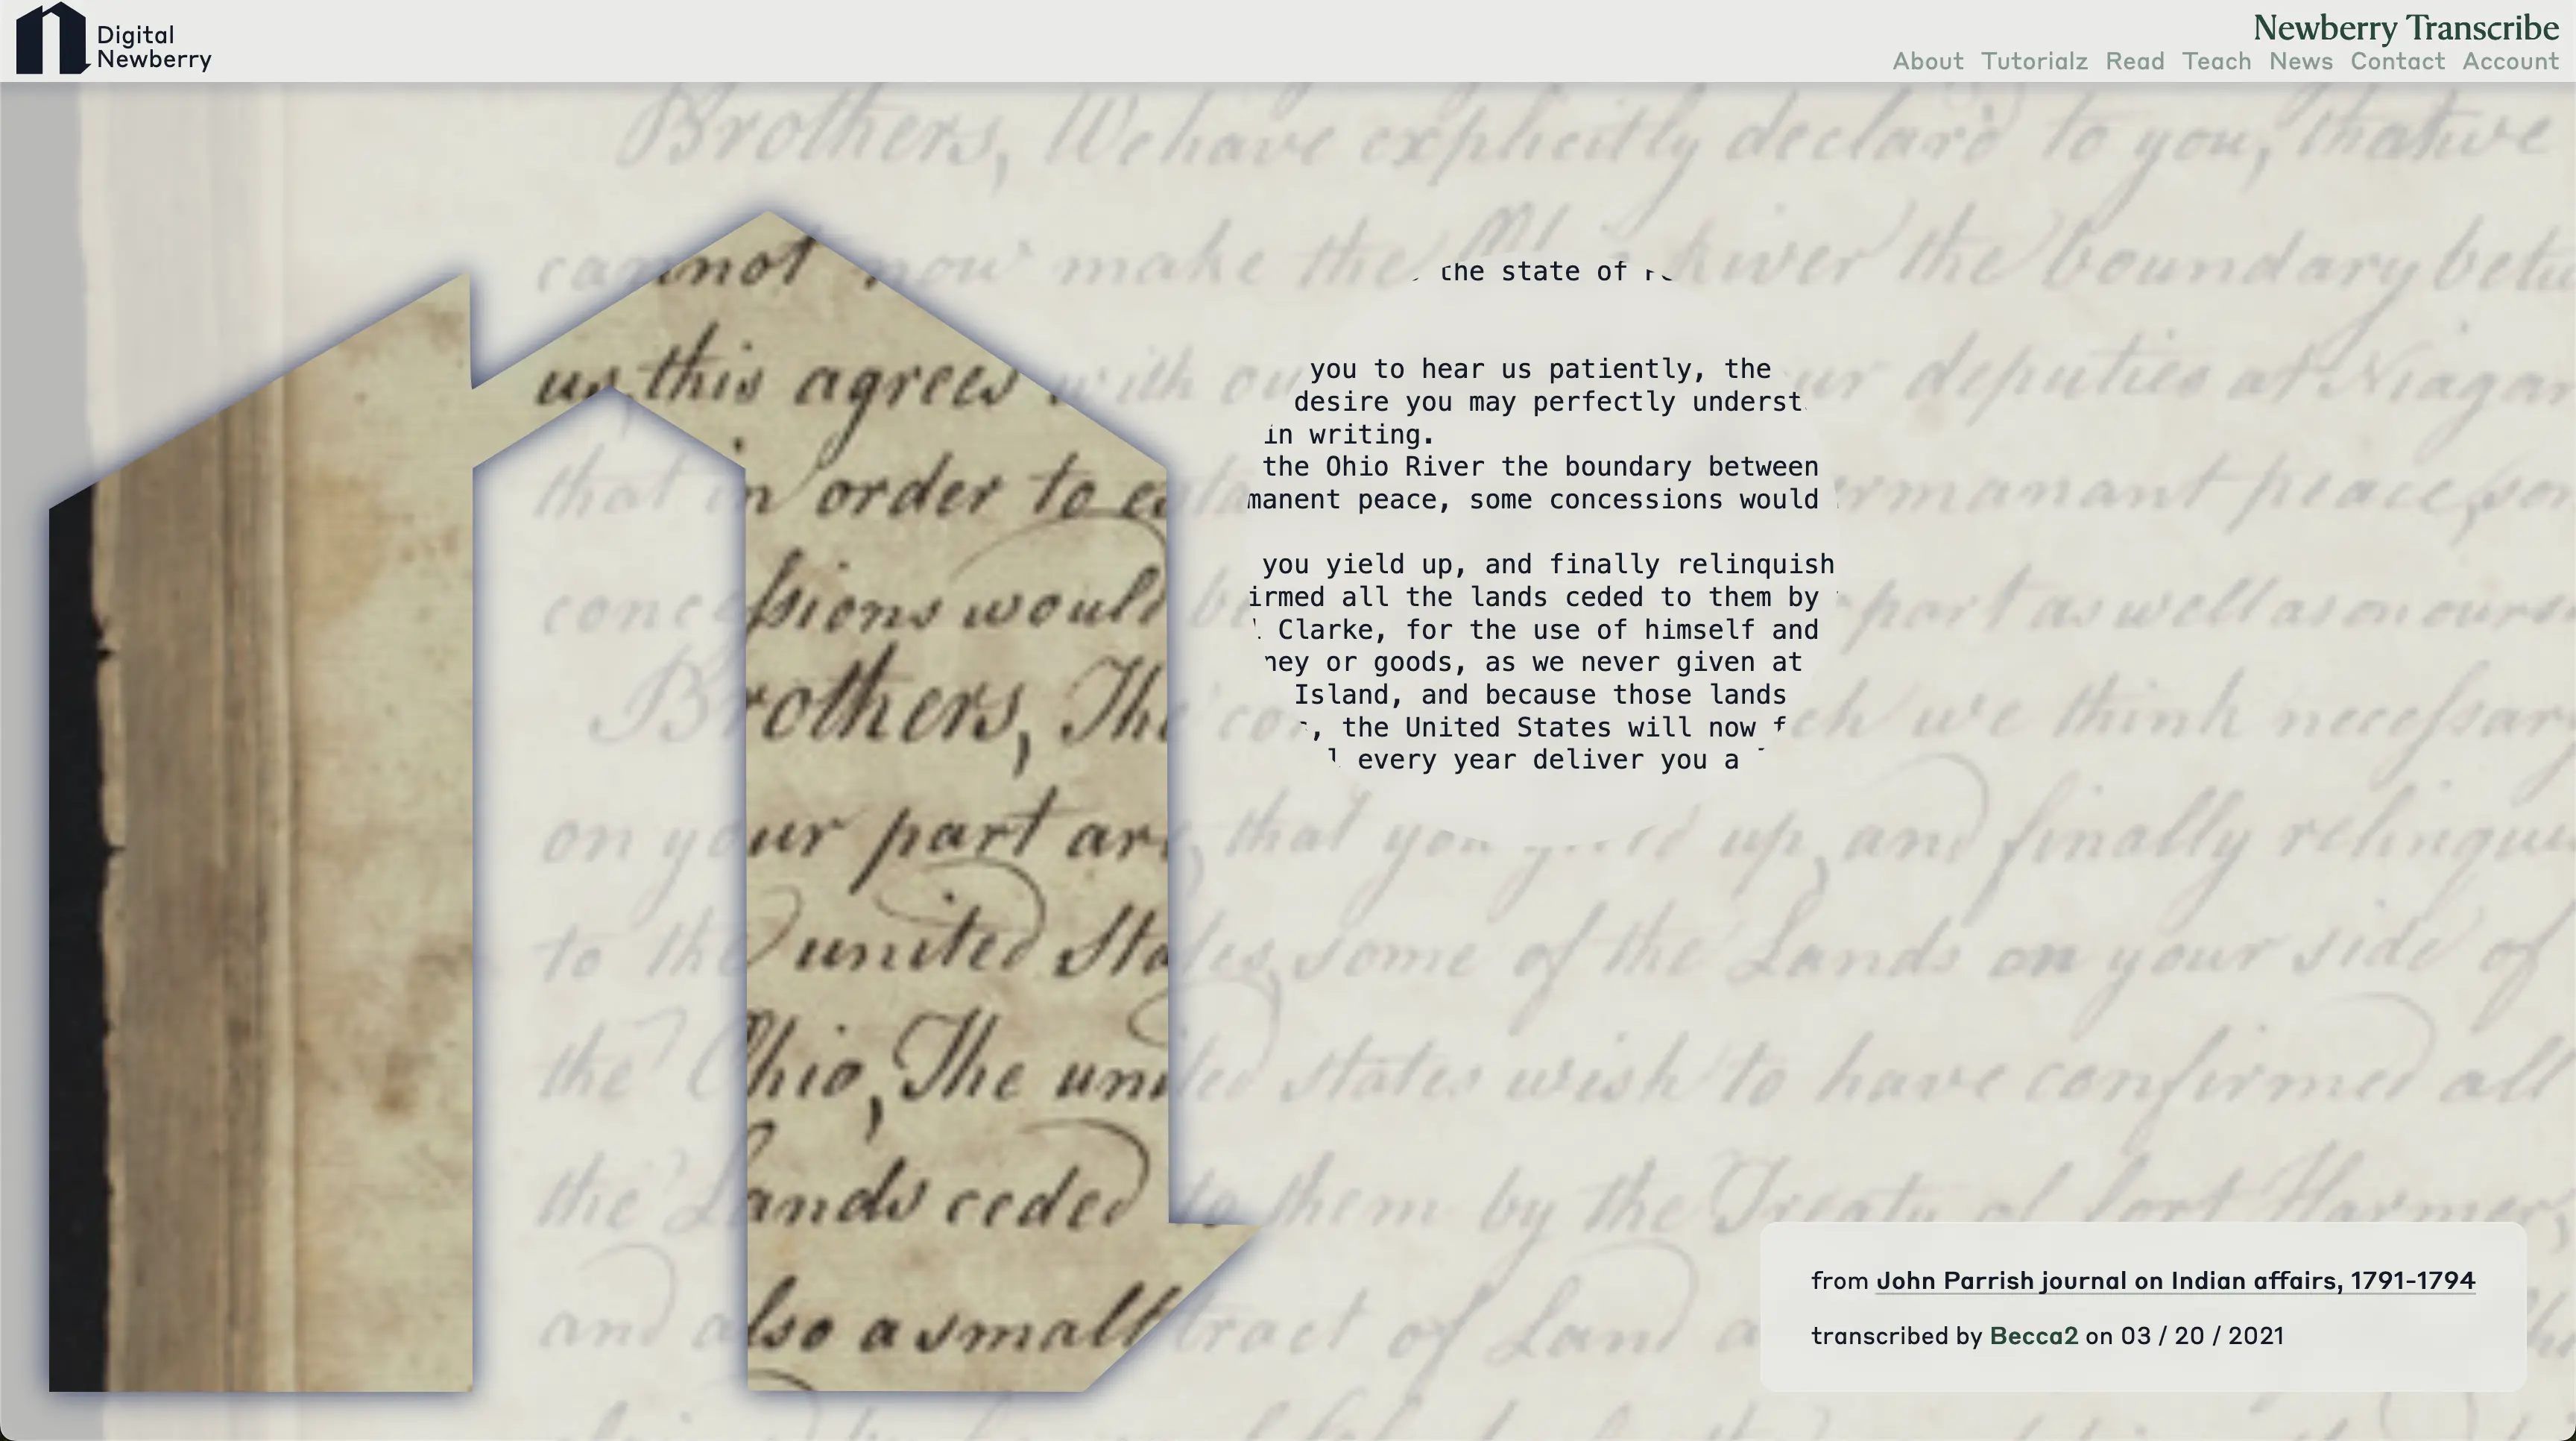 Digital
Newberry
Newberry Transcribe
About Tutorialz Read Teach News Contact Account
Brothers, We have explicitly declar'd to you, that we
cannot now make the River the boundary betw
us, this agrees with our deputies at Niagar
that in order to esta rmanant peace, som
concessions would be part as well as on ours
Brothers, The con ch we think necessar
on your part are, that you yield up, and finally relinqui
to the united States, some of the Lands on your side of
the Ohio, The united States wish to have confirmed all
the Lands ceded to them by the Treaty of Fort Harmer,
and also a small tract of Land
the state of
you to hear us patiently, the
desire you may perfectly underst
in writing.
the Ohio River the boundary between
manent peace, some concessions would
you yield up, and finally relinquish
irmed all the lands ceded to them by
Clarke, for the use of himself and
ney or goods, as we never given at
Island, and because those lands
, the United States will now f
every year deliver you a
from John Parrish journal on Indian affairs, 1791-1794
transcribed by Becca2 on 03 / 20 / 2021